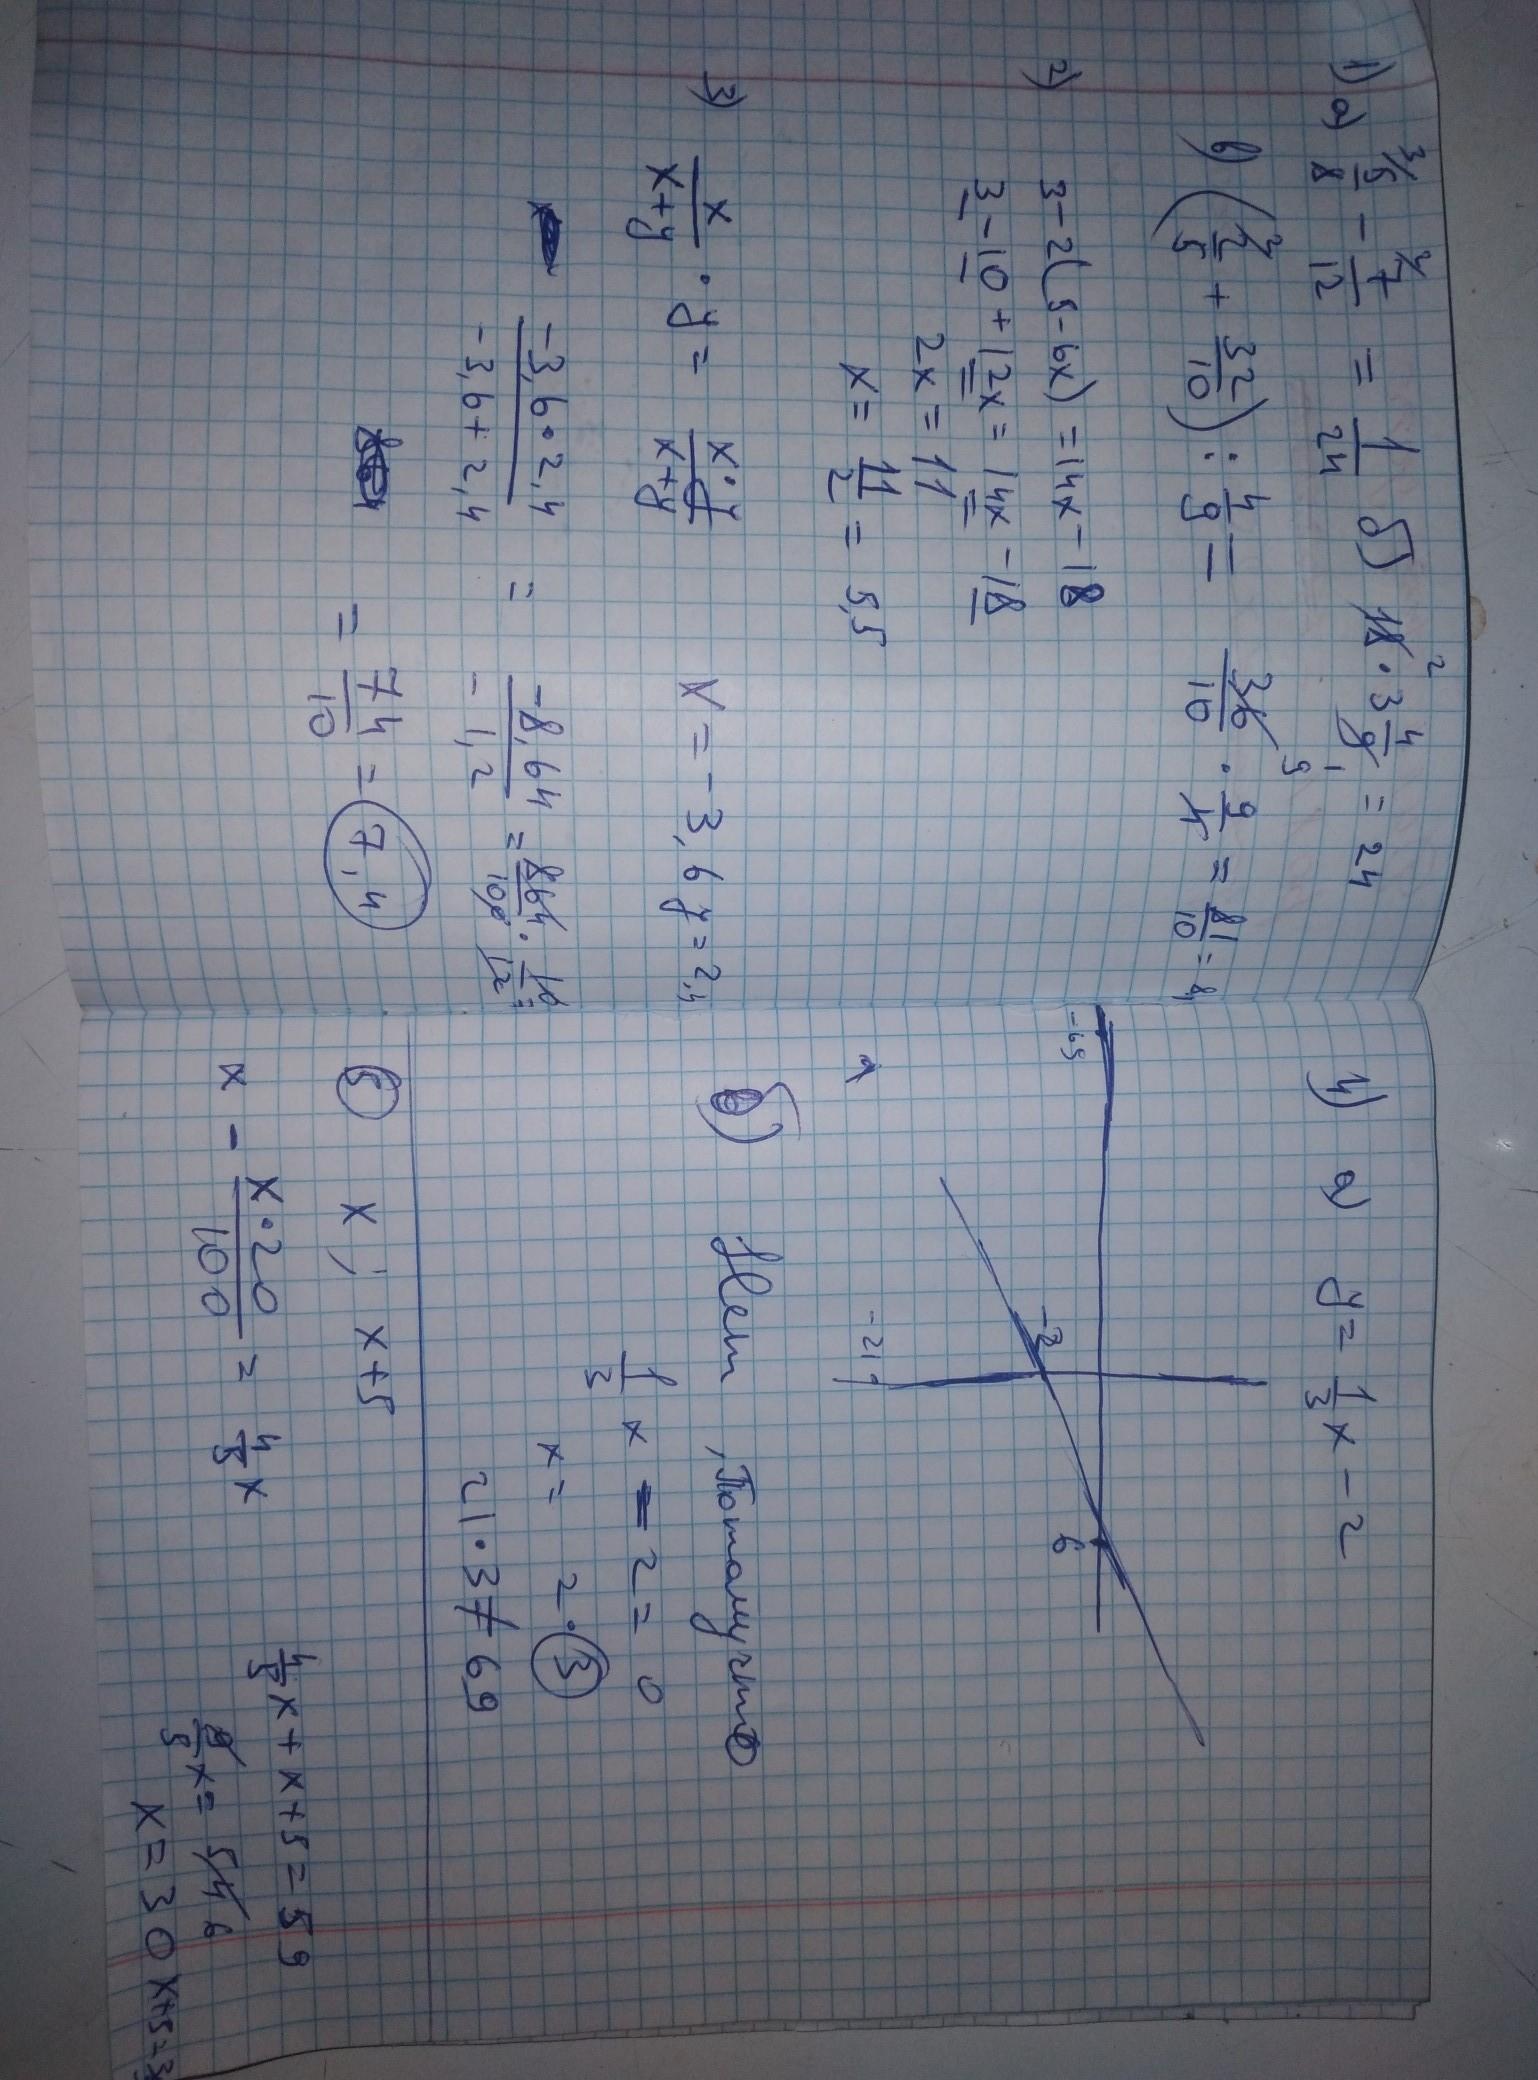 1) а) 5/8 - 7/12 = 1/24 б) 18 · 3 4/9 = 24
в) (2/5 + 32/10) : 4/9 = 36/10 · 9/4 = 81/10 = 8,1
2) 3-2(5-6x) = 14x-18
3-10+12x = 14x-18
2x = 11
x = 11/2 = 5,5
3) x/(x+y) · y = x·y/(x+y) x = -3,6 y = 2,4
-3,6·2,4/(-3,6+2,4) = -8,64/-1,2 = 864/100 · 10/12 =
= 74/10 = 7,4
4) а) y = 1/3 x - 2
-65
-2
6
-21
б) Нет, Потомучто
1/3 x - 2 = 0
x = 2·3
21·3 ≠ 69
5 x; x+5
x - x·20/100 = 4/5 x
4/5 x + x + 5 = 59
9/5 x = 54 6
x = 30 x+5=3